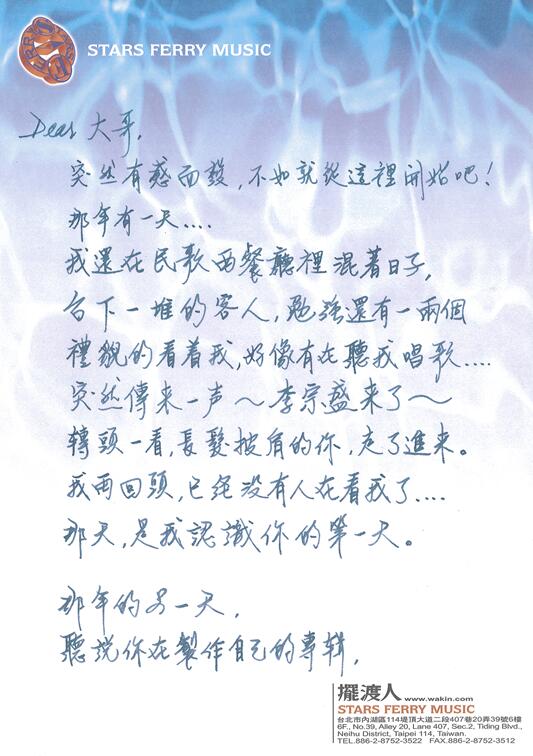 STARS FERRY MUSIC
Dear 大哥,
突然有感而發,不如就從這裡開始吧!
那年有一天....
我還在民歌西餐廳裡混着日子,
台下一堆的客人,勉强還有一兩個
禮貌的看着我,好像有在聽我唱歌....
突然傳来一声~李宗盛来了~
轉頭一看,長髮披肩的你,走了進来。
我再回頭,已經没有人在看我了....
那天,是我認識你的第一天。
那年的另一天,
聽説你在製作自己的專辑,
擺渡人 www.wakin.com
STARS FERRY MUSIC
台北市內湖區114堤頂大道二段407巷20弄39號6樓
6F., No.39, Alley 20, Lane 407, Sec.2, Tiding Blvd.,
Neihu District, Taipei 114, Taiwan.
TEL.886-2-8752-3522 FAX.886-2-8752-3512